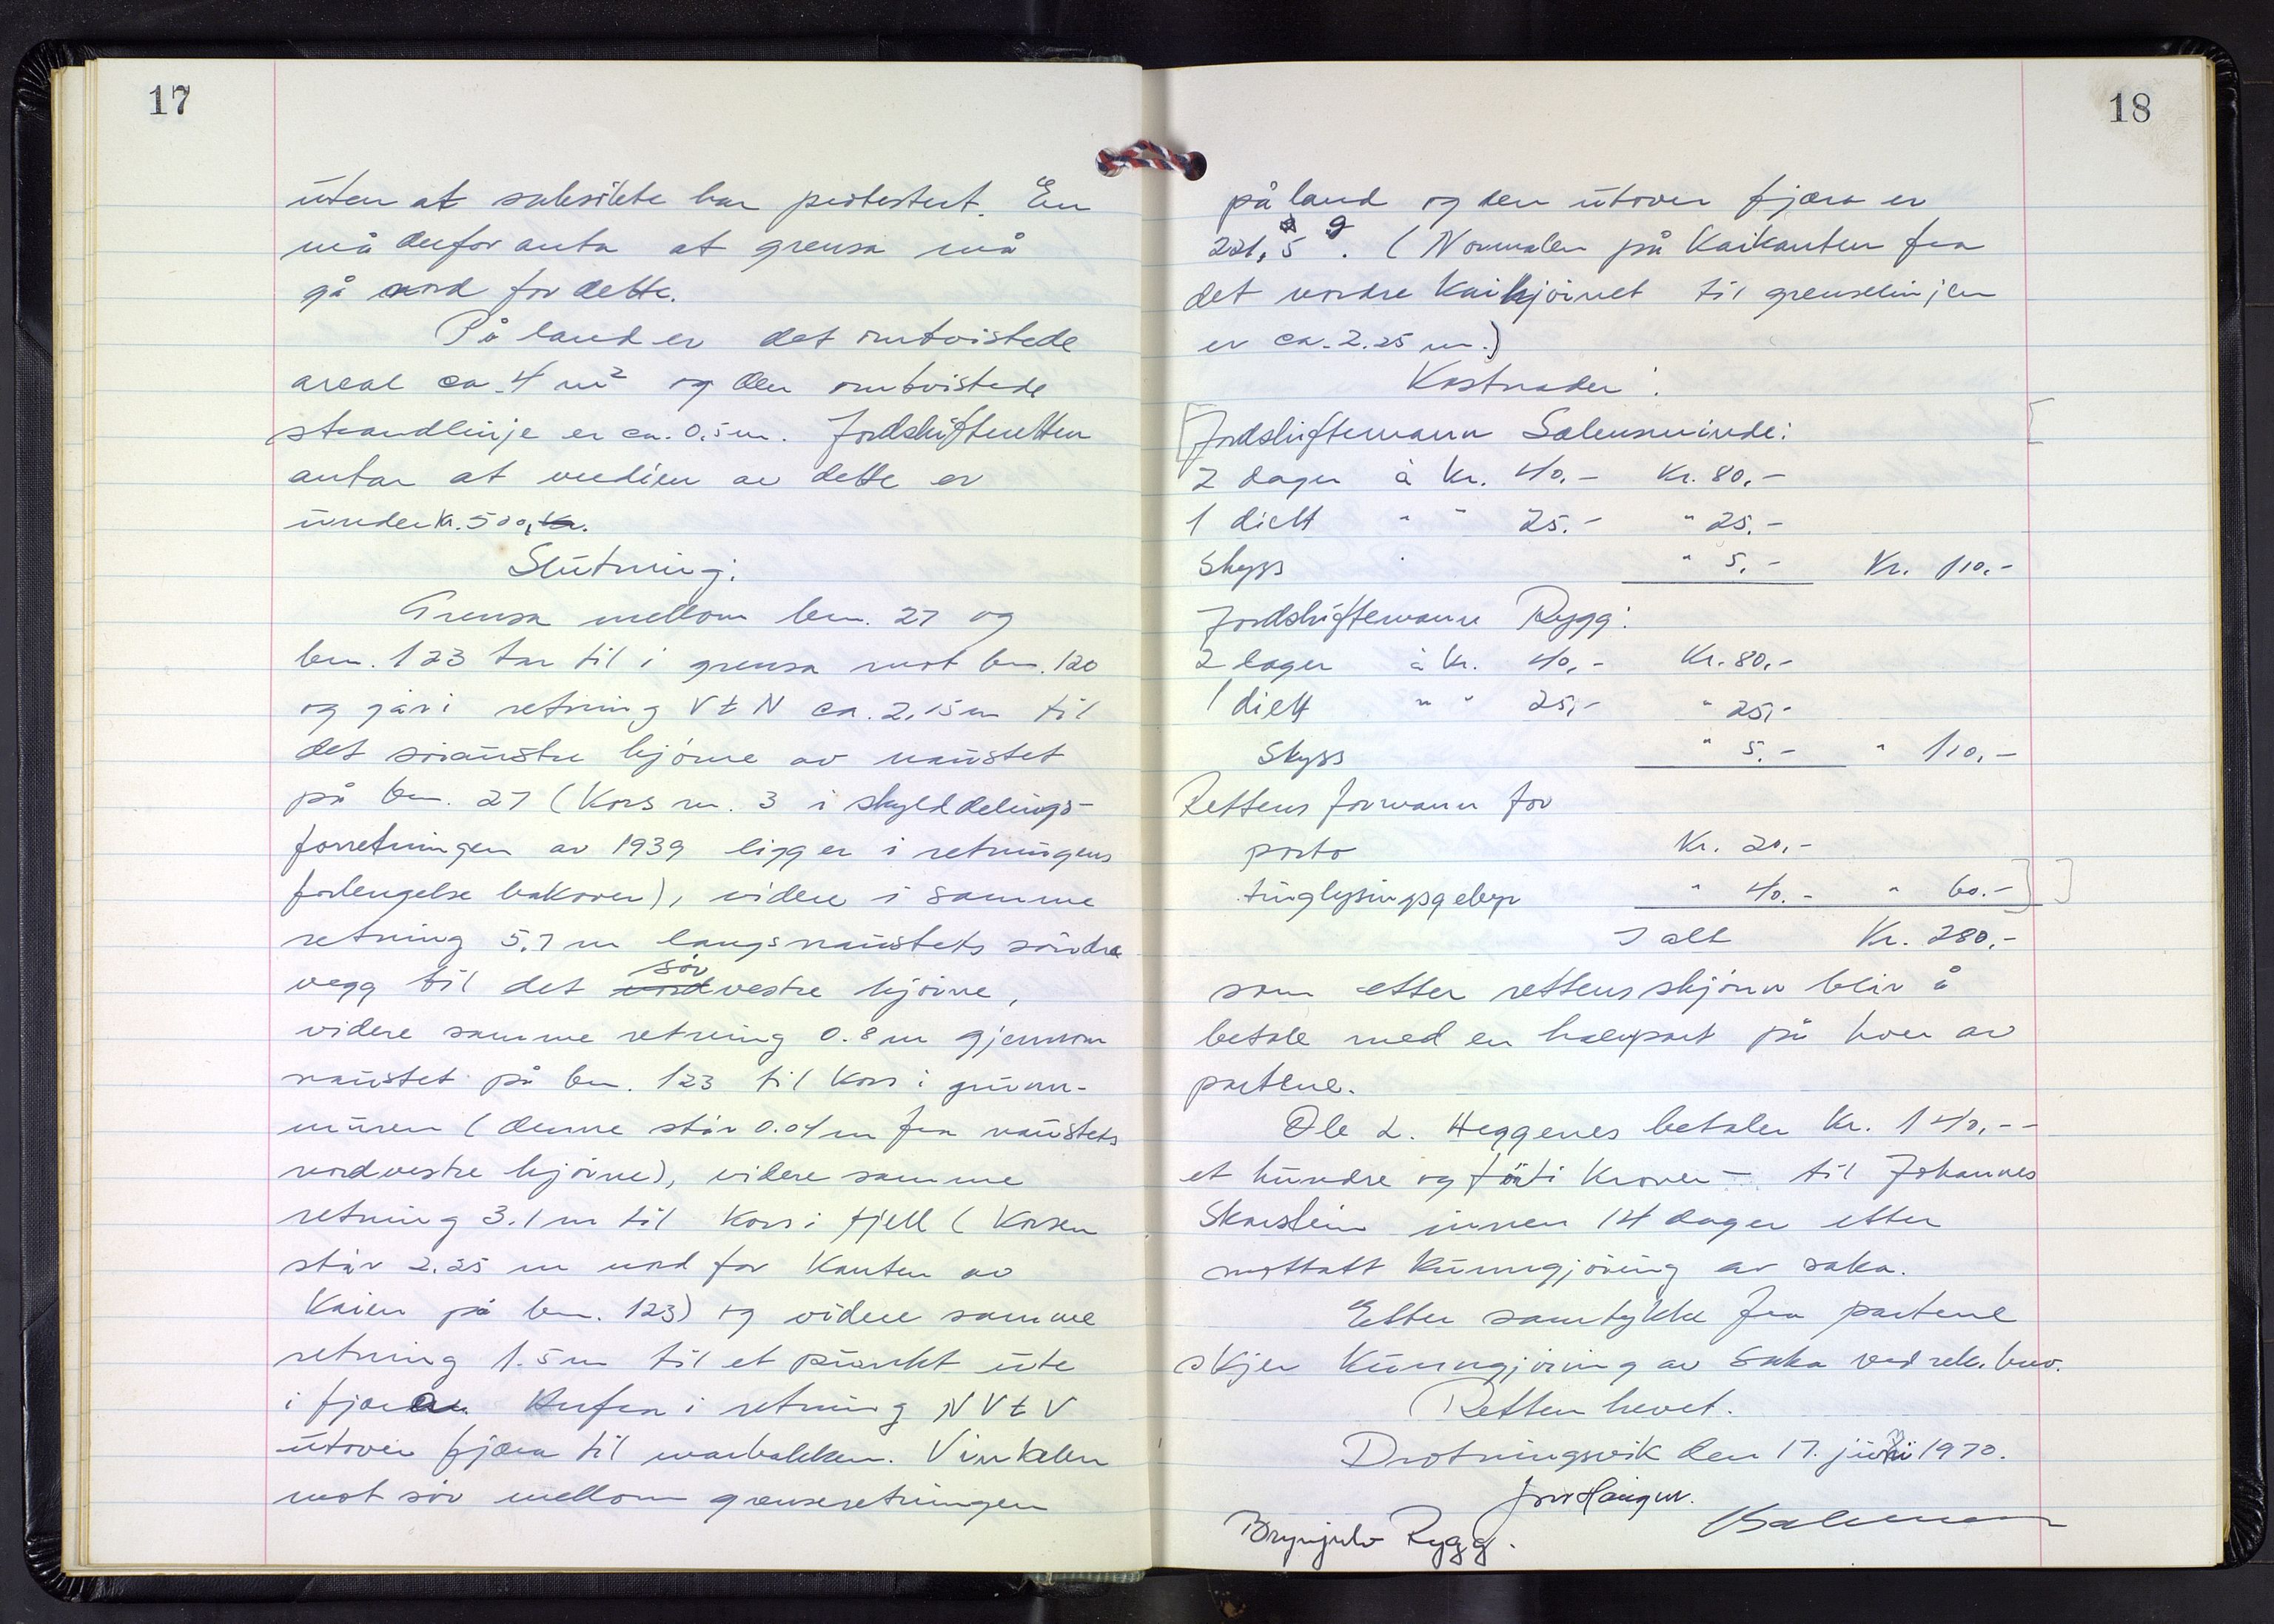 17
uten at saksökte har protestert. En
må derfor anta at grensa må
gå nord for dette.
På land er det omtvistede
areal ca. 4 m² og den omtvistede
strandlinje er ca. 0,5 m. Jordskifteretten
antar at verdien av dette er
under kr. 500,
Slutning:
Grensa mellom bn. 27 og
bn. 123 tar til i grensa mot bn. 120
og går i retning V t N ca. 2,15 m til
det söraustre hjörne av naustet
på bn. 27 (Kors nr. 3 i skylddelings-
forretningen av 1939 ligger i retningens
forlengelse bakover), videre i samme
retning 5.7 m langs naustets söndre
vegg til det nord sörvestre hjörne,
videre samme retning 0.8 m gjennom
naustet på bn. 123 til kors i grunn-
muren (denne står 0.04 m fra naustets
nordvestre hjörne), videre samme
retning 3.1 m til kors i fjell (Korsen
står 2.25 m nord for kanten av
Kaien på bn. 123) og videre samme
retning 1.5 m til et punkt ute
i fjæra. Herfra i retning NV t V
utover fjæra til marbakken. Vinkelen
mot sör mellom grenseretningen
18
på land og den utover fjæra er
221,5 g. (Normalen på Kaikanten fra
det nordre kaihjörnet til grenselinjen
er ca. 2.25 m.)
Kostnader:
Jordskiftemann Salensminde:
2 dager à kr. 40,- Kr. 80,-
1 diett " " 25.- " 25.-
Skyss " 5,- Kr. 110.-
Jordskiftemann Rygg:
2 dager à kr. 40,- Kr. 80,-
1 diett " " 25,- " 25,-
Skyss " 5.- " 110,-
Rettens formann for
porto Kr. 20,-
tinglysingsgebyr " 40.- " 60.-
I alt Kr. 280,-
som etter rettens skjönn blir å
betale med en halvpart på hver av
partene.
Ole L. Heggenes betaler kr. 140,--
et hundre og förti kroner - til Johannes
Skarstein innen 14 dager etter
mottatt kunngjöring av saka.
Etter samtykke fra partene
skjer kunngjöring av saka ved rek. brev.
Retten hevet.
Drotningsvik den 17. juni 1970.
Brynjulv Rygg.